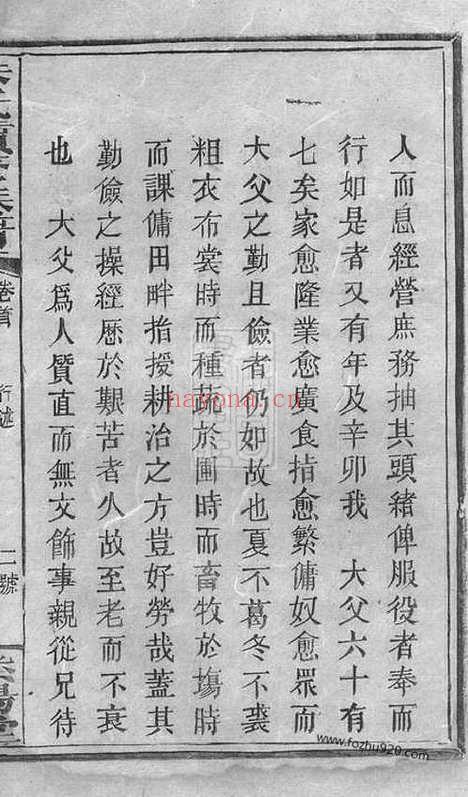 人而息經營庶務抽其頭緒俾服役者奉而
行如是者又有年及辛卯我　大父六十有
七矣家愈隆業愈廣食指愈繁傭奴愈眾而
大父之勤且儉者仍如故也夏不葛冬不裘
粗衣布裳時而種蔬於圃時而畜牧於塲時
而課傭田畔指授耕治之方豈好勞哉蓋其
勤儉之操經歷於艱苦者久故至老而不衰
也　大父爲人質直而無文飾事親從兄待
卷首　行述　二號
nayona.cn
www.fozhu920.com